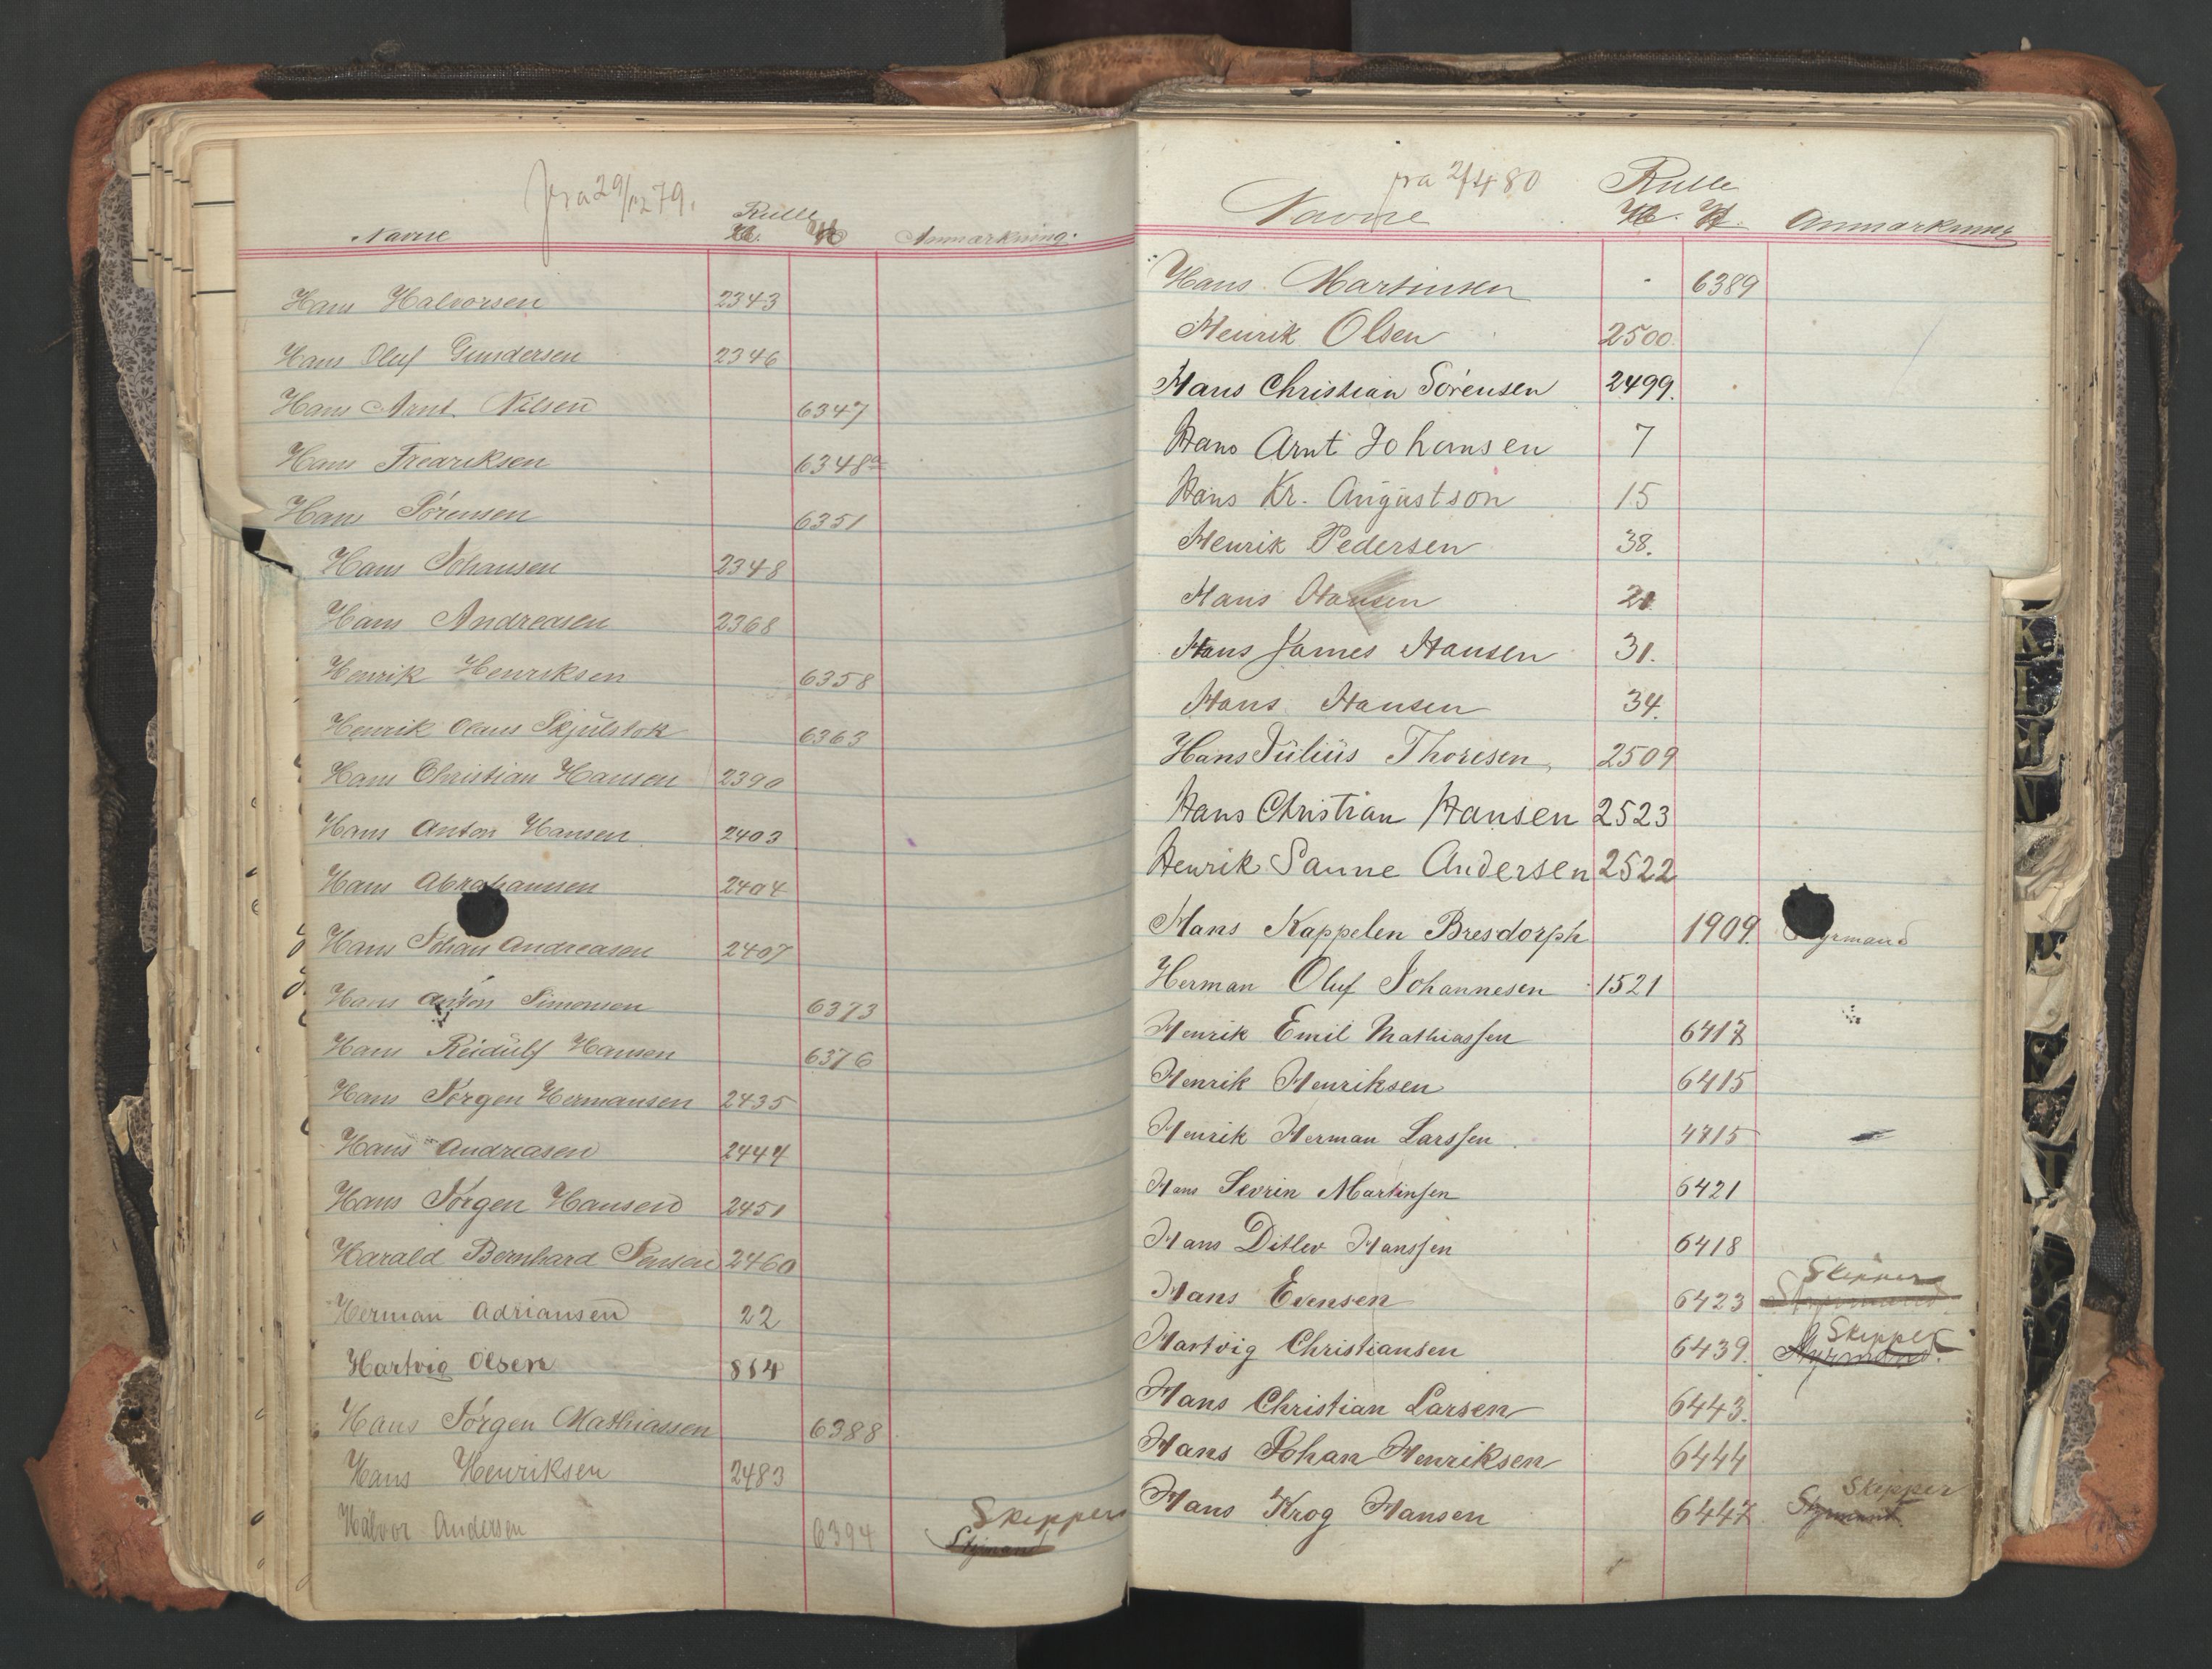 fra 29/12 79.
Rulle
Navne Anmærkning.
Hans Halvorsen 2343
Hans Oluf Gundersen 2346
Hans Arnt Nilsen 6347
Hans Fredriksen 6348a
Hans Sörensen 6351
Hans Johansen 2348
Hans Andreasen 2368
Henrik Henriksen 6358
Henrik Olaus Skjulstok 6363
Hans Christian Hansen 2390
Hans Anton Hansen 2403
Hans Abrahamsen 2404
Hans Johan Andreasen 2407
Hans Anton Simonsen 6373
Hans Reidulf Hansen 6376
Hans Jörgen Hermansen 2435
Hans Andreasen 2444
Hans Jörgen Hansen 2451
Harald Bernhard Jensen 2460
Herman Adriansen 22
Hartvig Olsen 864
Hans Jörgen Mathiassen 6388
Hans Henriksen 2483
Skipper
Halvor Andersen 6394 Styrmand
fra 2/4 80 Rulle
Navne Anmærkning
Hans Martinsen - 6389
Henrik Olsen 2500.
Hans Christian Sörensen 2499.
Hans Arnt Johansen 7
Hans Kr. Augustson 15
Henrik Pedersen 38.
Hans Hansen
Hans James Hansen 31.
Hans Hansen 34.
Hans Julius Thoresen 2509
Hans Christian Hansen 2523
Henrik Sanne Andersen 2522
Hans Kappelen Bresdorph 1909. Styrmand
Herman Oluf Johannesen 1521
Henrik Emil Mathiassen
Henrik Henriksen 6415
Henrik Herman Larssen 4715
Hans Sevrin Martinsen 6421
Hans Ditlev Hanssen 6418
Skipper
Hans Evensen 6423 Styrmand.
Skipper
Hartvig Christiansen 6439. Styrmand.
Hans Christian Larsen 6443.
Hans Johan Henriksen 6444
Skipper
Hans Krog Hansen 6447 Styrmand.